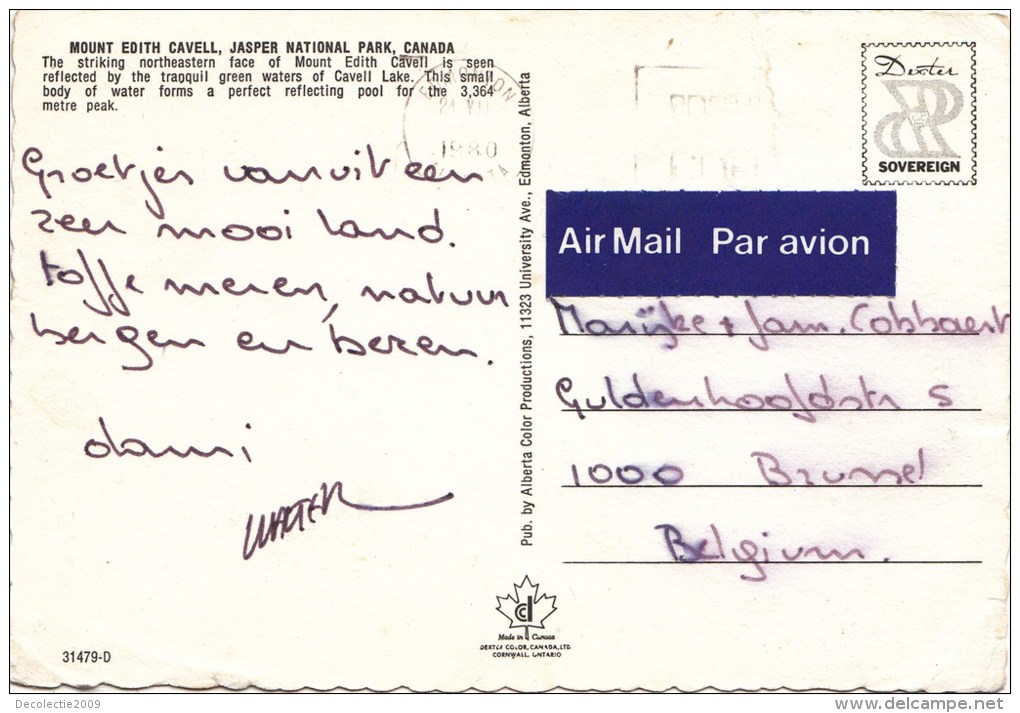 MOUNT EDITH CAVELL, JASPER NATIONAL PARK, CANADA
The striking northeastern face of Mount Edith Cavell is seen
reflected by the tranquil green waters of Cavell Lake. This small
body of water forms a perfect reflecting pool for the 3,364
metre peak.
EDMONTON
1980
Groetjes vanuit een
zeer mooi land.
toffe meren, natuur
bergen en beren.
dami
WALTER
Pub. by Alberta Color Productions, 11323 University Ave., Edmonton, Alberta
Dexter
SOVEREIGN
Air Mail Par avion
Marijke + Jam. Cobbaert
Guldenhoofdstr 5
1000 Brussel
Belgium.
Made in Canada
DEXTER COLOR, CANADA, LTD.
CORNWALL, ONTARIO
31479-D
Decolectie2009
delcampe.net